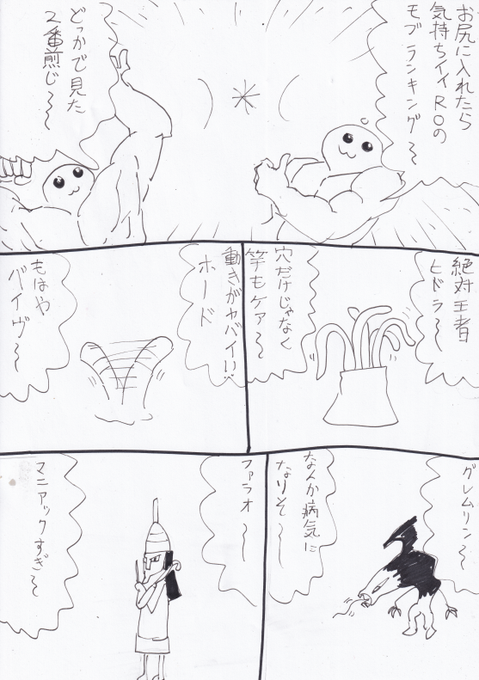 お尻に入れたら
気持ちイイROの
モブランキング～
どっかで見た
2番煎じ～～
絶対王者
ヒドラ～～
穴だけじゃなく
竿もケア～～
動きがヤバイ!!
ホード
もはや
バイヴ～～
グレムリン～～
なんか病気に
なりそ～～
ファラオ～
マニアックすぎ～～